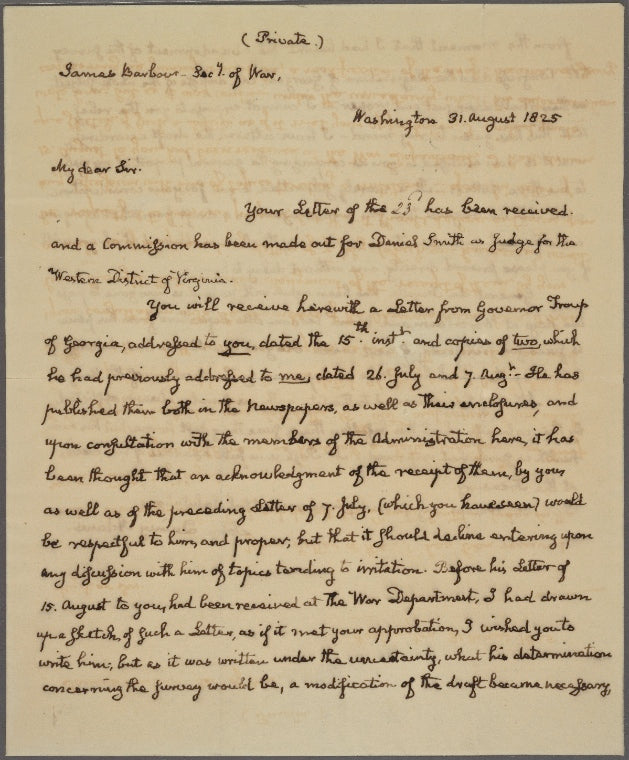 (Private.)
James Barbour - Secy. of War,
Washington 31. August 1825
My dear Sir.
Your Letter of the 23d has been received.
and a Commission has been made out for Daniel Smith as Judge for the
Western District of Virginia.
You will receive herewith a Letter from Governor Troup
of Georgia, addressed to you, dated the 15th. instt. and copies of two, which
he had previously addressed to me, dated 26. July and 7. Augt. He has
published them both in the Newspapers, as well as their enclosures, and
upon consultation with the members of the Administration here, it has
been thought that an acknowledgment of the receipt of them, by you,
as well as of the preceding Letter of 7. July, (which you have seen) would
be respectful to him, and proper; but that it should decline entering upon
any discussion with him of topics tending to irritation. Before his Letter of
15. August to you, had been received at the War Department, I had drawn
up a sketch, of such a Letter, as if it met your approbation, I wished you to
write him; but as it was written under the uncertainty, what his determination
concerning the survey would be, a modification of the draft became necessary,